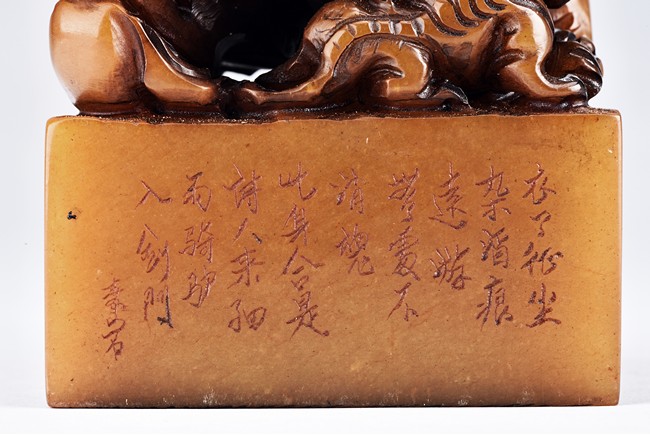 衣上征尘
杂酒痕
遠游
無處不
消魂
此身合是
詩人未细
雨骑驴
入剑門